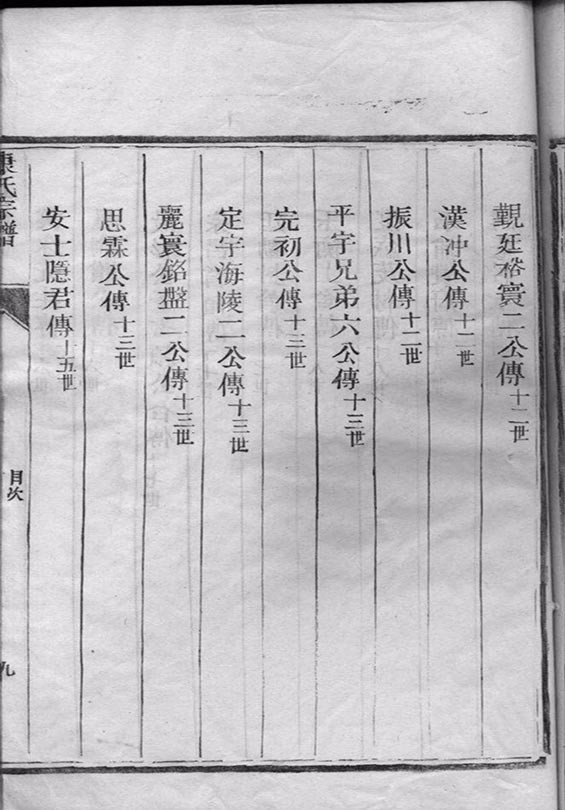 覲廷裕寰二公傳十二世
漢冲公傳十二世
振川公傳十二世
平宇兄弟六公傳十三世
完初公傳十三世
定宇海陵二公傳十三世
麗寰銘盤二公傳十三世
思霖公傳十三世
安士隱君傳十五世
康氏宗譜
目次
九